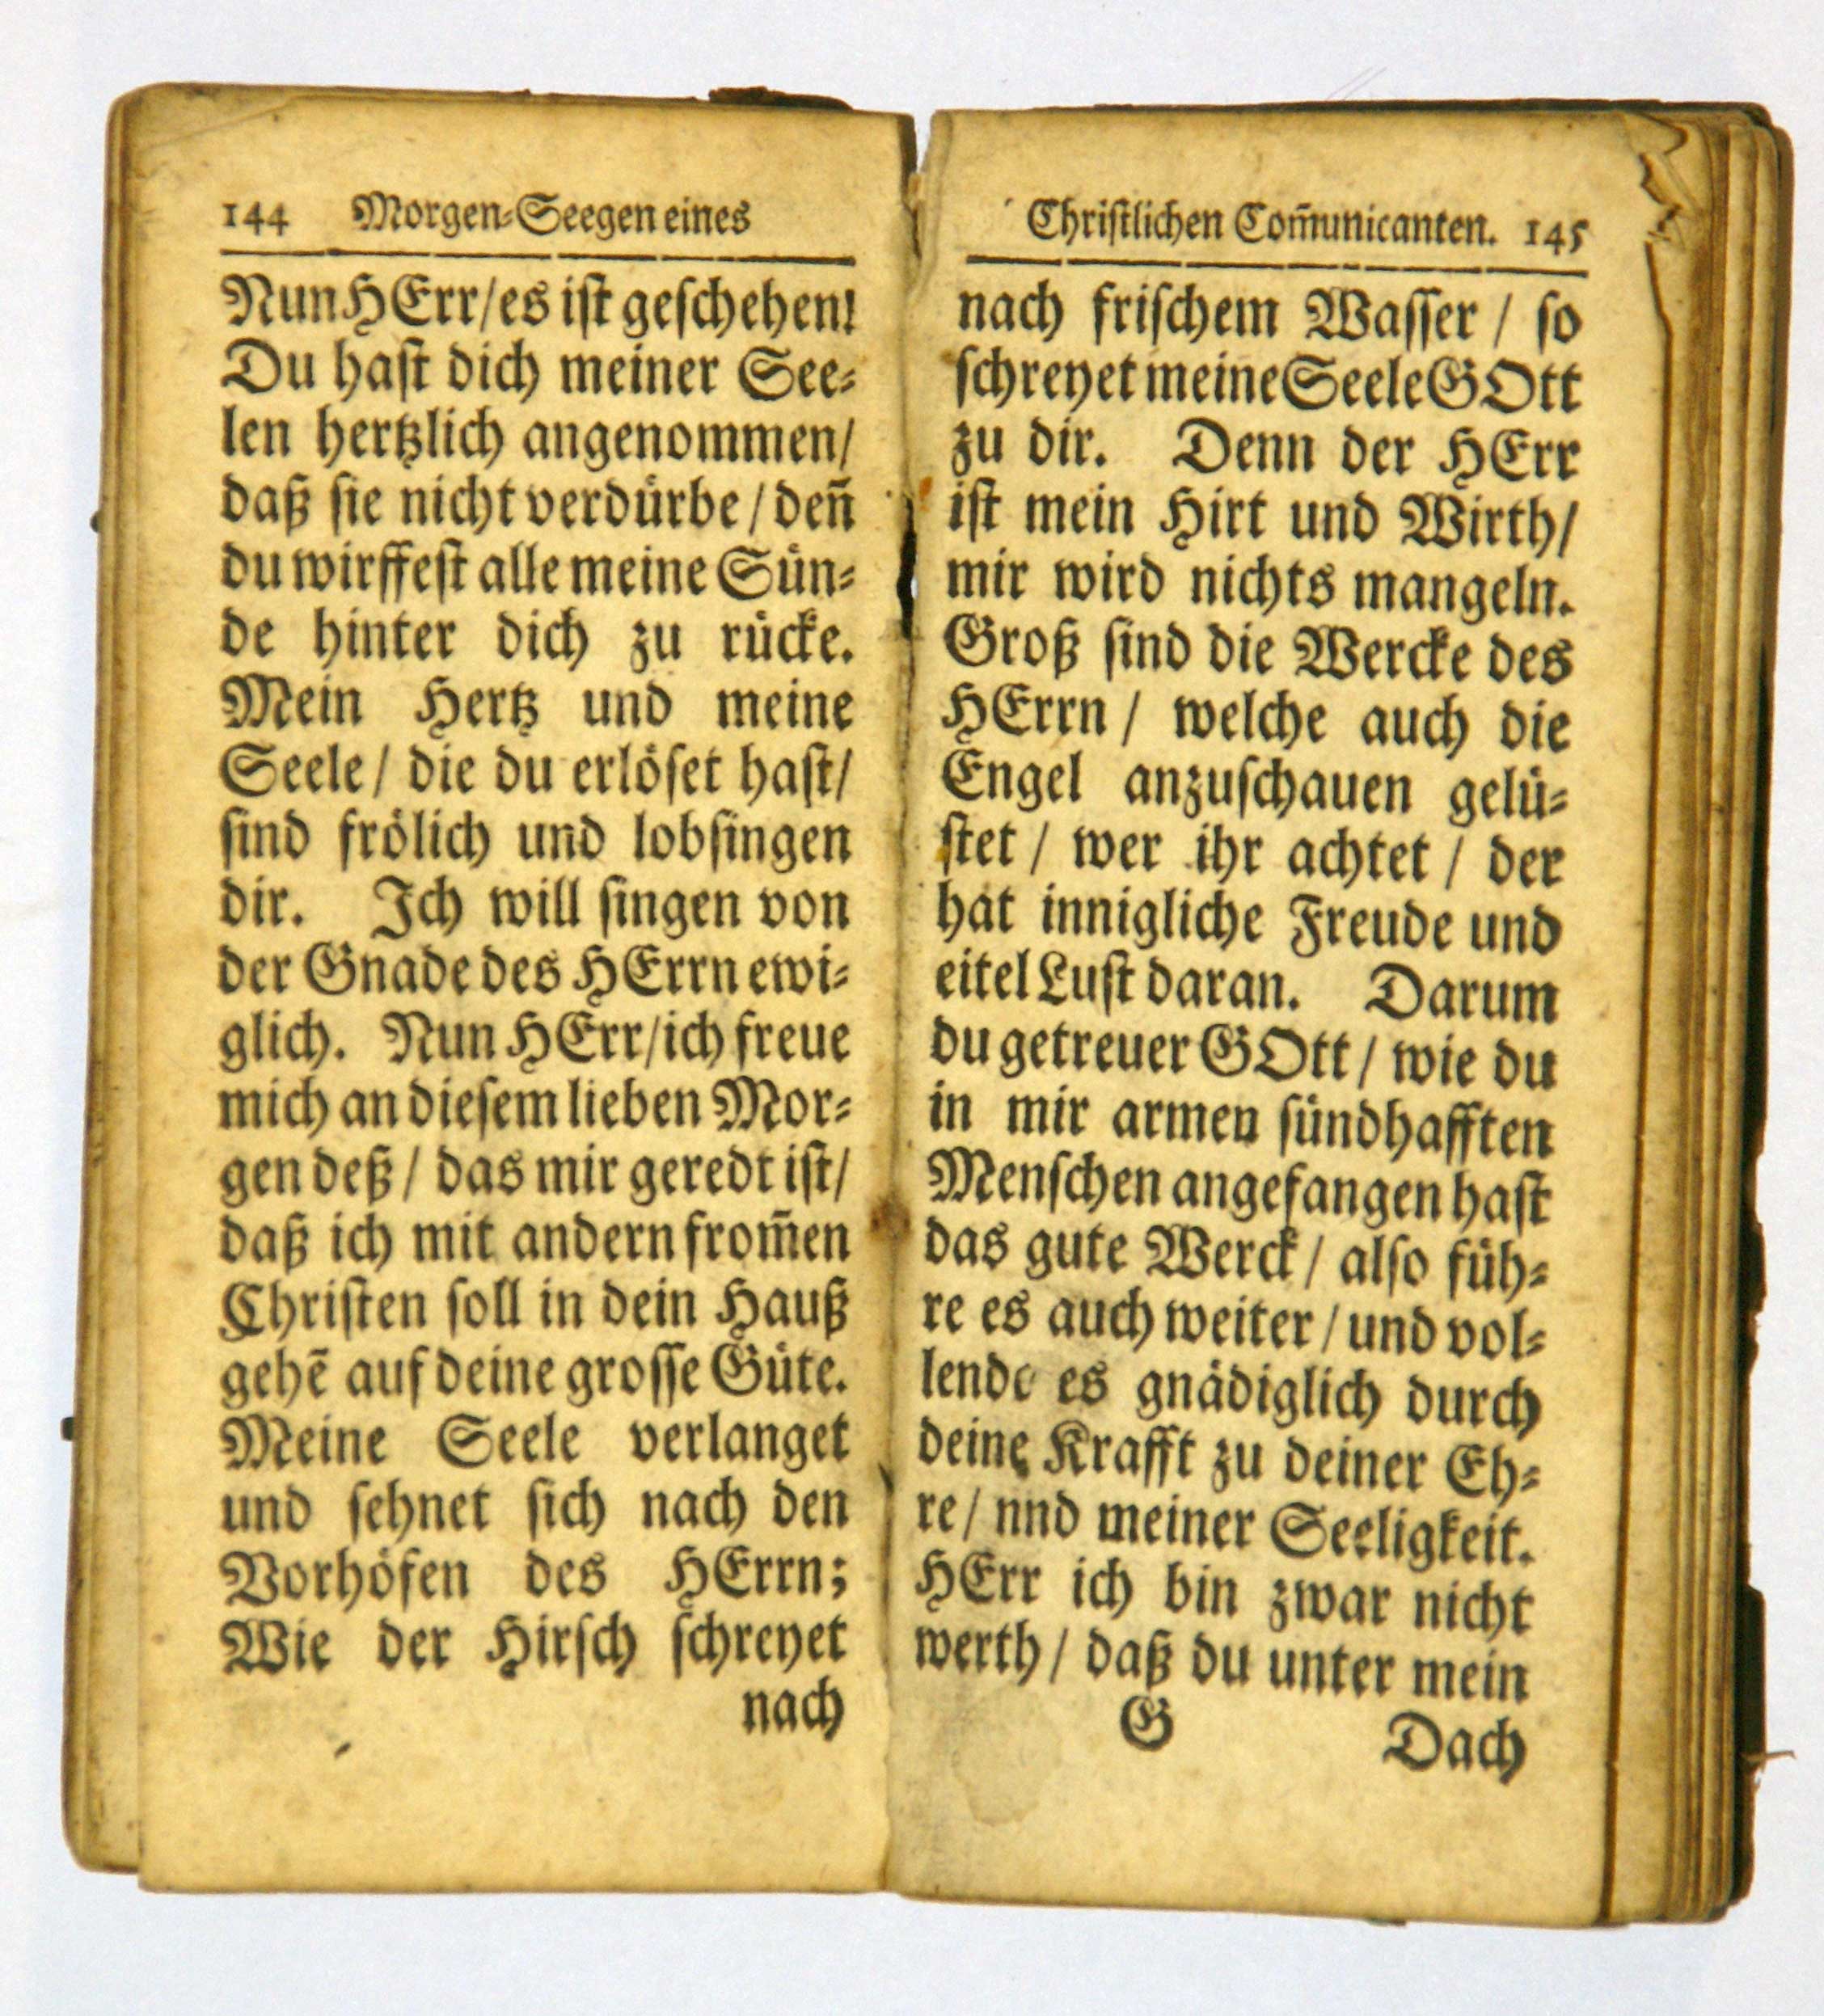 144 Morgen-Seegen eines
Nun HErr/es ist geschehen!
Du hast dich meiner See-
len hertzlich angenommen/
daß sie nicht verdürbe / deñ
du wirffest alle meine Sün-
de hinter dich zu rücke.
Mein Hertz und meine
Seele / die du erlöset hast/
sind frölich und lobsingen
dir. Ich will singen von
der Gnade des HErrn ewi-
glich. Nun HErr/ich freue
mich an diesem lieben Mor-
gen deß / das mir geredt ist/
daß ich mit andern from̃en
Christen soll in dein Hauß
gehẽ auf deine grosse Güte.
Meine Seele verlanget
und sehnet sich nach den
Vorhöfen des HErrn;
Wie der Hirsch schreyet
nach
Christlichen Com̃unicanten. 145
nach frischem Wasser / so
schreyet meine Seele GOtt
zu dir. Denn der HErr
ist mein Hirt und Wirth/
mir wird nichts mangeln.
Groß sind die Wercke des
HErrn / welche auch die
Engel anzuschauen gelü-
stet / wer ihr achtet / der
hat innigliche Freude und
eitel Lust daran. Darum
du getreuer GOtt / wie du
in mir armen sündhafften
Menschen angefangen hast
das gute Werck / also füh-
re es auch weiter / und vol-
lende es gnädiglich durch
deine Krafft zu deiner Eh-
re / nnd meiner Seeligkeit.
HErr ich bin zwar nicht
werth / daß du unter mein
G Dach